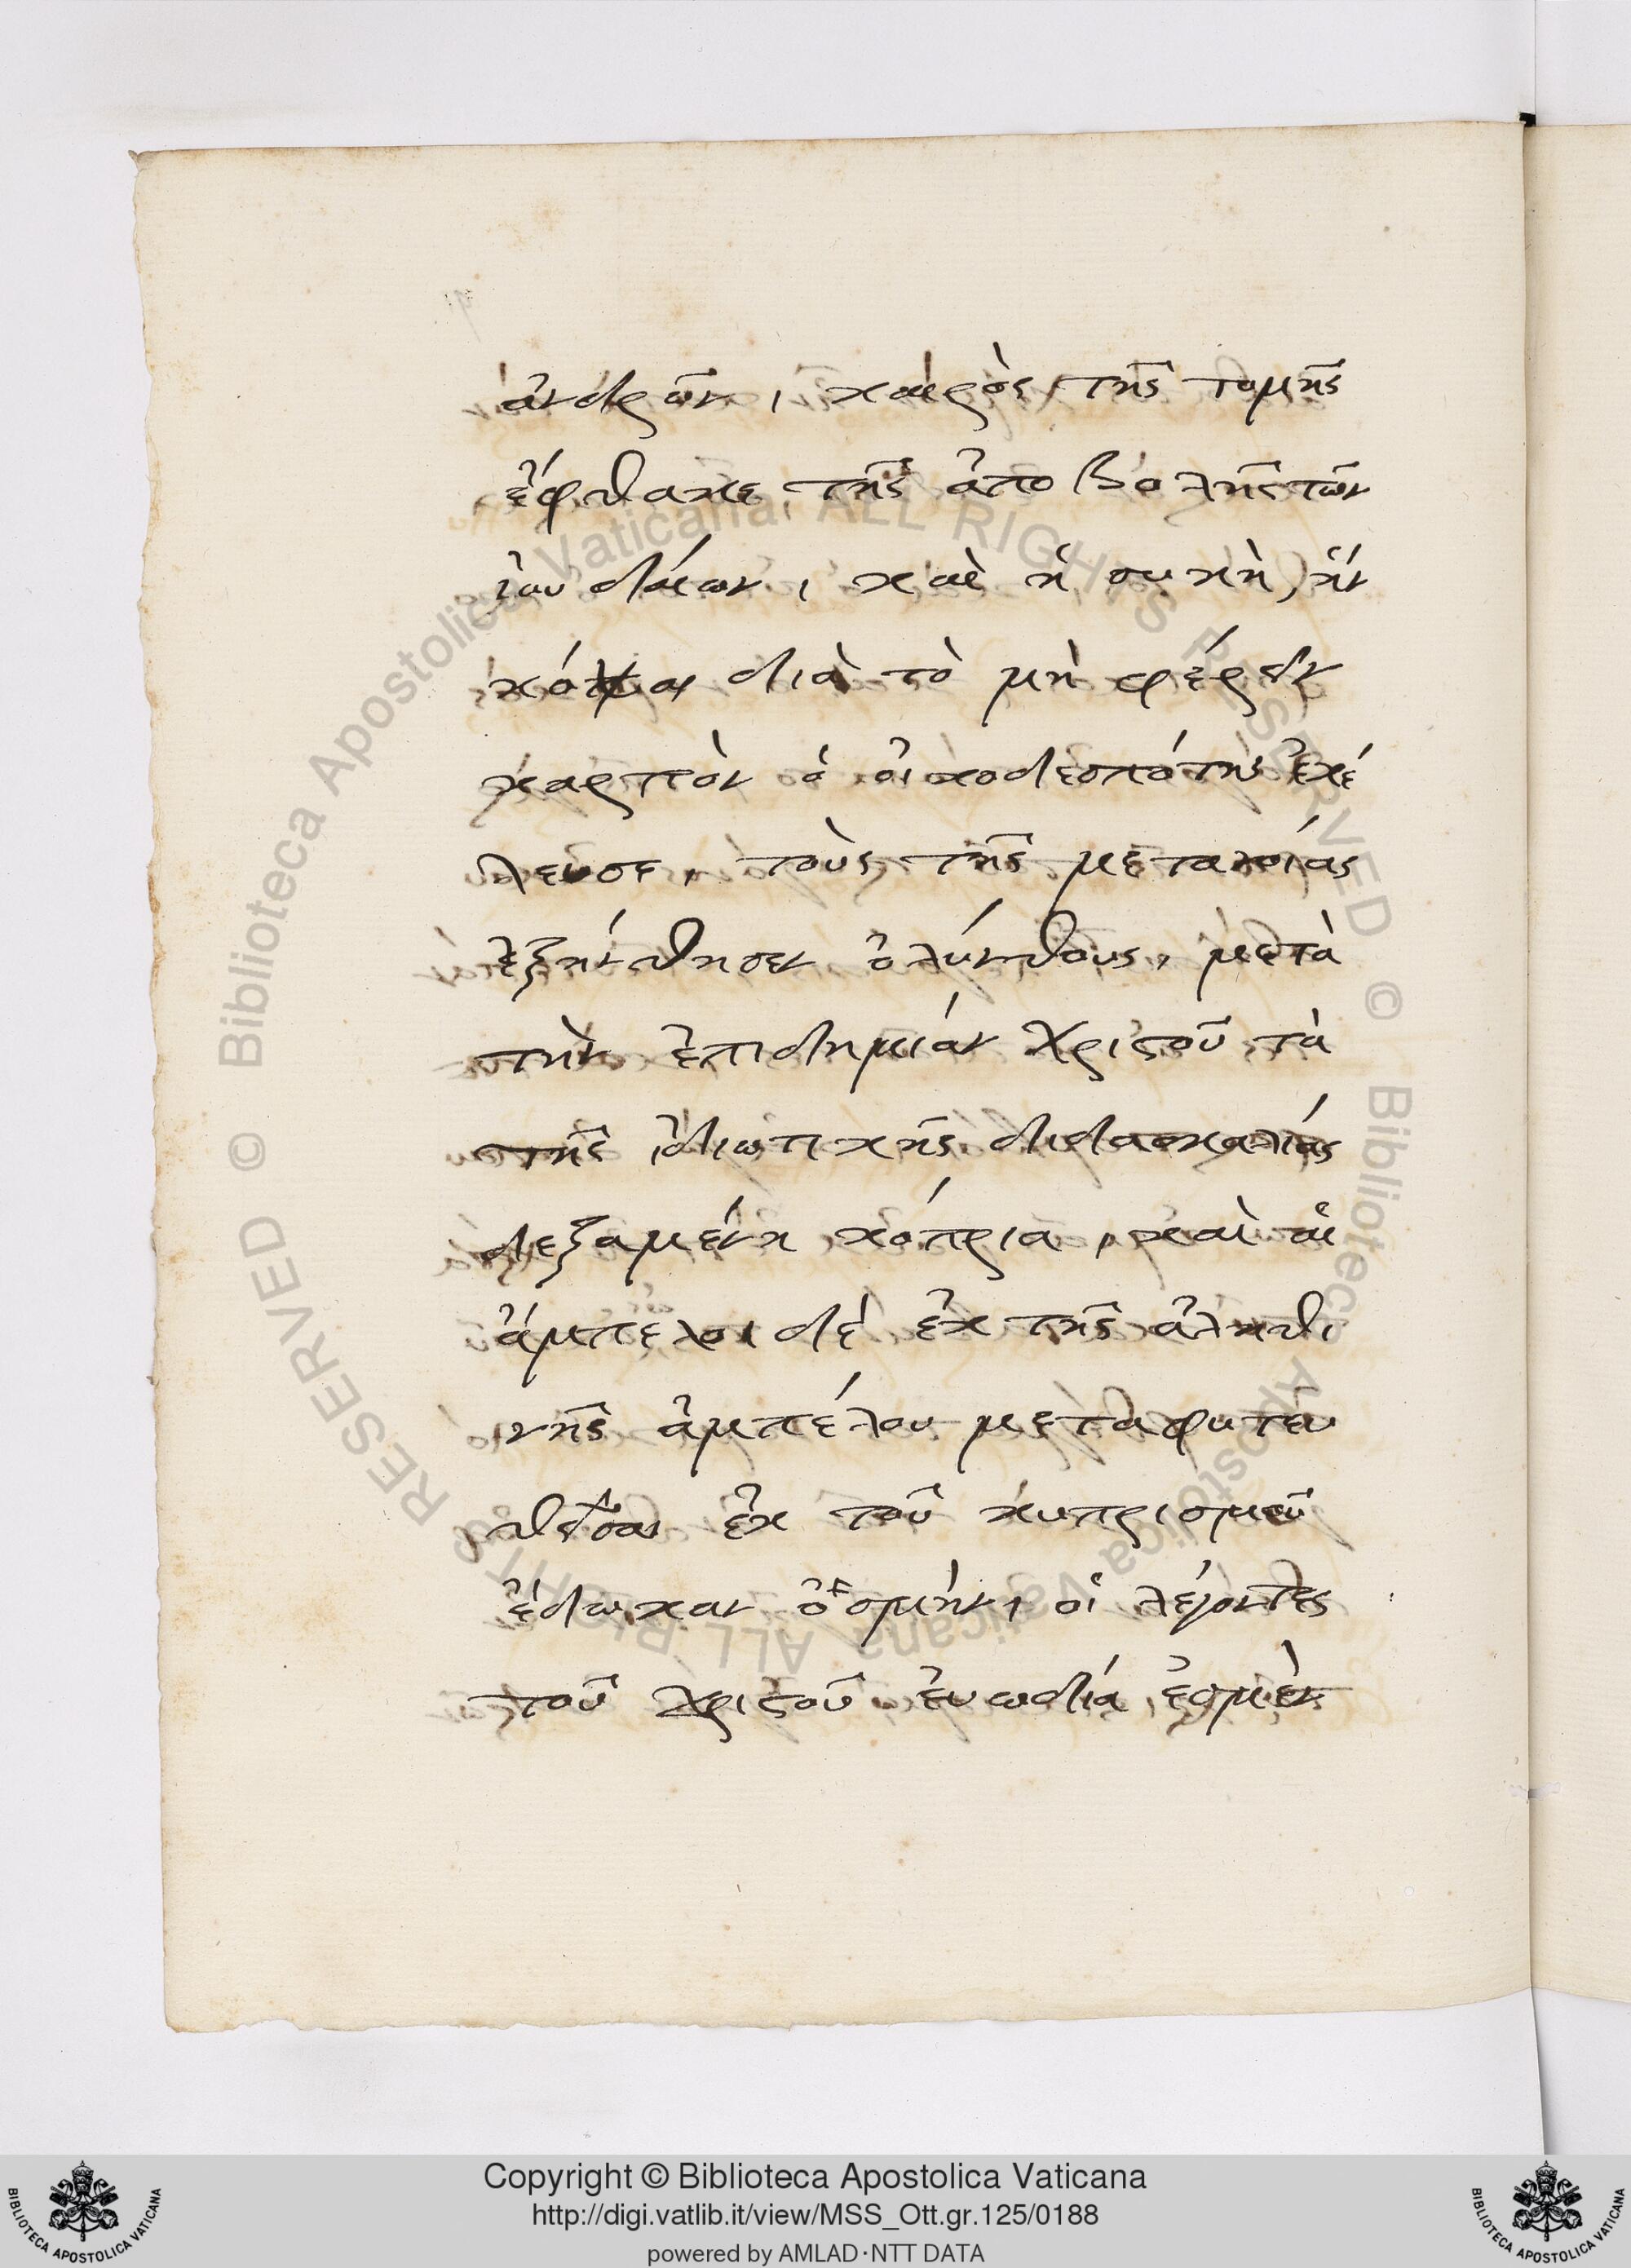 ἀνδρῶν, καιρὸς τῆς τομῆς
ἔφθακε τῆς ἀποβολῆς τῶν
ἰουδαίων, καὶ ἡ συκῆ, ἣν
κόψαι διὰ τὸ μὴ φέρειν
καρπὸν ὁ οἰκοδεσπότης ἐκέ
λευσε, τοὺς τῆς μετανοίας
ἐξήνθησεν ὀλύνθους, μετὰ
τὴν ἐπιδημίαν Χριστοῦ τὰ
τῆς ἰδιωτικῆς διδασκαλίας
δεξαμένη κόπρια, καὶ αἱ
ἄμπελοι δὲ ἐκ τῆς ἀληθι
νῆς ἀμπέλου μεταφυτευ
θεῖσαι ἐκ τοῦ κυπρισμοῦ
ἔδωκαν ὀσμὴν, οἱ λέγοντες
τοῦ Χριστοῦ ἐυωδία ἐσμὲν
Copyright © Biblioteca Apostolica Vaticana
http://digi.vatlib.it/view/MSS_Ott.gr.125/0188
powered by AMLAD·NTT DATA
BIBLIOTECA APOSTOLICA VATICANA
BIBLIOTECA APOSTOLICA VATICANA
© Biblioteca Apostolica Vaticana, ALL RIGHTS RESERVED © Biblioteca Apostolica Vaticana ALL RIGHTS RESERVED